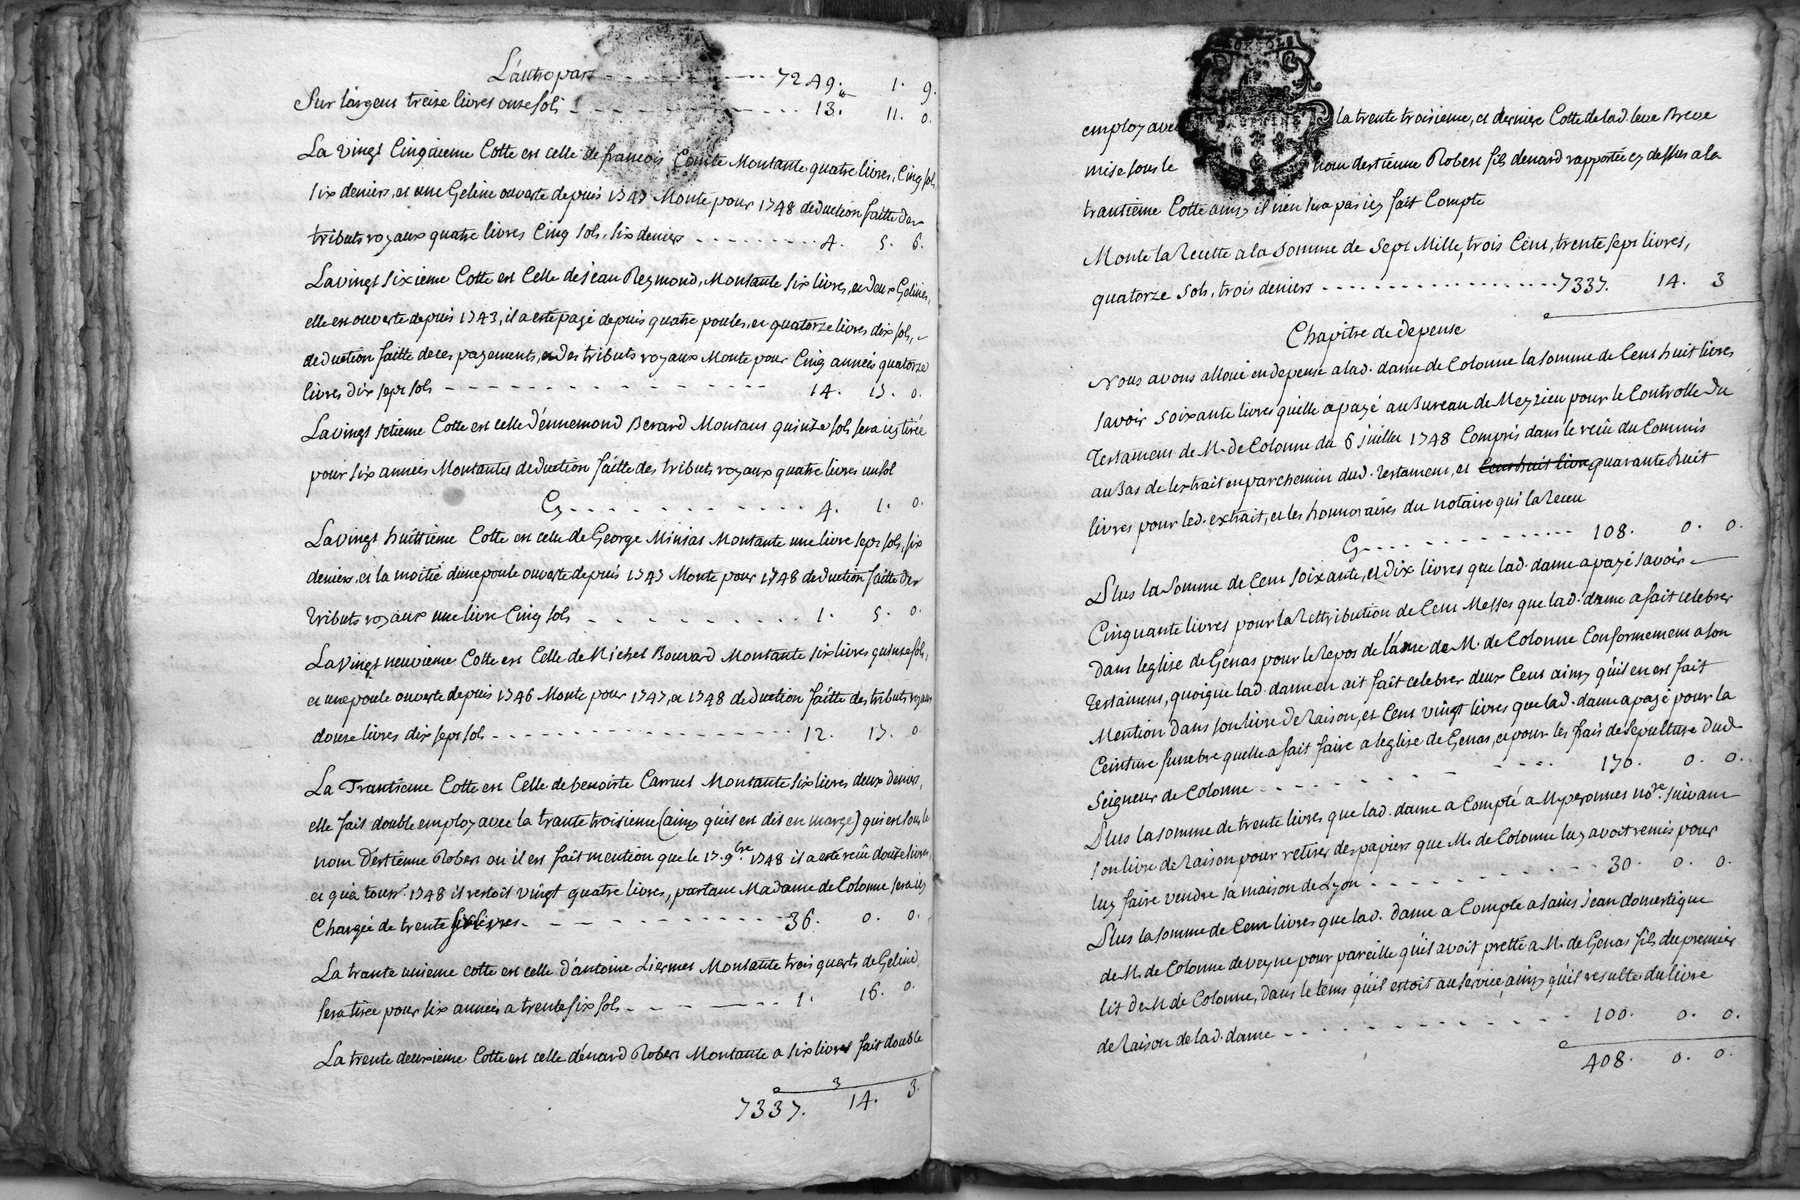 L'autre part ------- 7249. 1. 9.
Sur l'argent treize livres onze sols ------- 13. 11. 0.
La vingt Cinquieme Cotte est celle de francois Comte Montante quatre livres, Cinq sols,
six deniers, et une Geline ouverte depuis 1747 Monte pour 1748 deduction faitte des
tributs royaux quatre livres Cinq sols, six deniers ------- 4. 5. 6.
La vingt sixieme Cotte est Celle de jean Reymond, Montante six livres, et deux Gelines,
elle est ouverte depuis 1743, il a esté payé depuis quatre poules, et quatorze livres dix sols,
deduction faitte de ces payements, et des tributs royaux Monte pour Cinq années quatorze
livres dix sept sols ------- 14. 17. 0.
La vingt setieme Cotte est celle d'ennemond Berard Montant quinze sols sera icy tirée
pour six années Montantes deduction faitte des tributs royaux quatre livres un sol
Cy ------- 4. 1. 0.
La vingt huitieme Cotte est celle de George Minjat Montante une livre sept sols, six
deniers, et la moitié d'une poule ouverte depuis 1747 Monte pour 1748 deduction faitte des
tributs royaux une livre Cinq sols ------- 1. 5. 0.
La Vingt neuvieme Cotte est Celle de Michel Bouvard Montante six livres quinze sols,
et une poule ouverte depuis 1746 Monte pour 1747, et 1748 deduction faitte des tributs royaux
douze livres dix sept sols ------- 12. 17. 0.
La Trantieme Cotte est Celle de benoiste Carruel Montante six livres deux deniers,
elle fait double employ avec la trante troisieme (ainsy qu'il est dit en marge) qui est sous le
nom d'estienne Robert ou il est fait mention que le 17. 9bre 1748 il a esté reçu douze livres,
et qu'a touss.t 1748 il restoit vingt quatre livres, partant Madame de Colonne sera icy
Chargée de trente six livres. ------- 36. 0. 0.
La trante unieme cotte est celle d'antoine Liermet Montante trois quarts de Geline,
sera tirée pour six années a trente six sols ------- 1. 16. 0.
La trente deuxieme Cotte est celle d'enard Robert Montante a six livres fait double
7337. 14. 3.
employ avec la trente troisieme, et derniere Cotte de lad. leve Breve
mise sous le nom d'estienne Robert fils d'enard rapportée cy dessus a la
trantieme Cotte ainsy il n'en sera pas icy fait Compte
Monte la Recette a la somme de Sept Mille, trois Cent, trente sept livres,
quatorze sols, trois deniers ------- 7337. 14. 3
Chapitre de depense
Nous avons alloué en depense a lad. dame de Colonne la somme de Cent huit livres
savoir soixante livres qu'elle a payé au Bureau de Meyzieu pour le Controlle du
Testament de M. de Colonne du 6 juillet 1748 Compris dans le reçu du Commis
au Bas de l'extrait en parchemin dud. testament, et Cent huit livres quarante huit
livres pour led. extrait, et les honnoraires du notaire qui l'a Receu
Cy ------- 108. 0. 0.
Plus la Somme de Cent soixante, et dix livres que lad. dame a payé savoir
Cinquante livres pour la Rettribution de Cent Messes que lad. dame a fait celebrer
dans l'eglise de Genas pour le Repos de l'âme de M. de Colonne Conformement a son
Testament, quoique lad. dame en ait fait celebrer deux Cent ainsy qu'il en est fait
Mention dans son livre de Raison, et Cent vingt livres que lad. dame a payé pour la
Ceinture funebre quelle a fait faire a leglise de Genas, et pour les frais de sepulture dud
Seigneur de Colonne ------- 170. 0. 0.
Plus la somme de trente livres que lad. dame a Compté a M. peronnet no.re suivant
son livre de Raison pour retirer des papiers que M. de Colonne luy avoit remis pour
luy faire vendre sa maison de Lyon ------- 30. 0. 0.
Plus la somme de Cent livres que lad. dame a Compté a saint jean domestique
de M. de Colonne de veyne pour pareille qu'il avoit pretté a M. de Genas fils du premier
lit de M. de Colonne, dans le tems qu'il estoit au service, ainsy qu'il resulte du livre
de Raison de lad. dame ------- 100. 0. 0.
408. 0. 0.